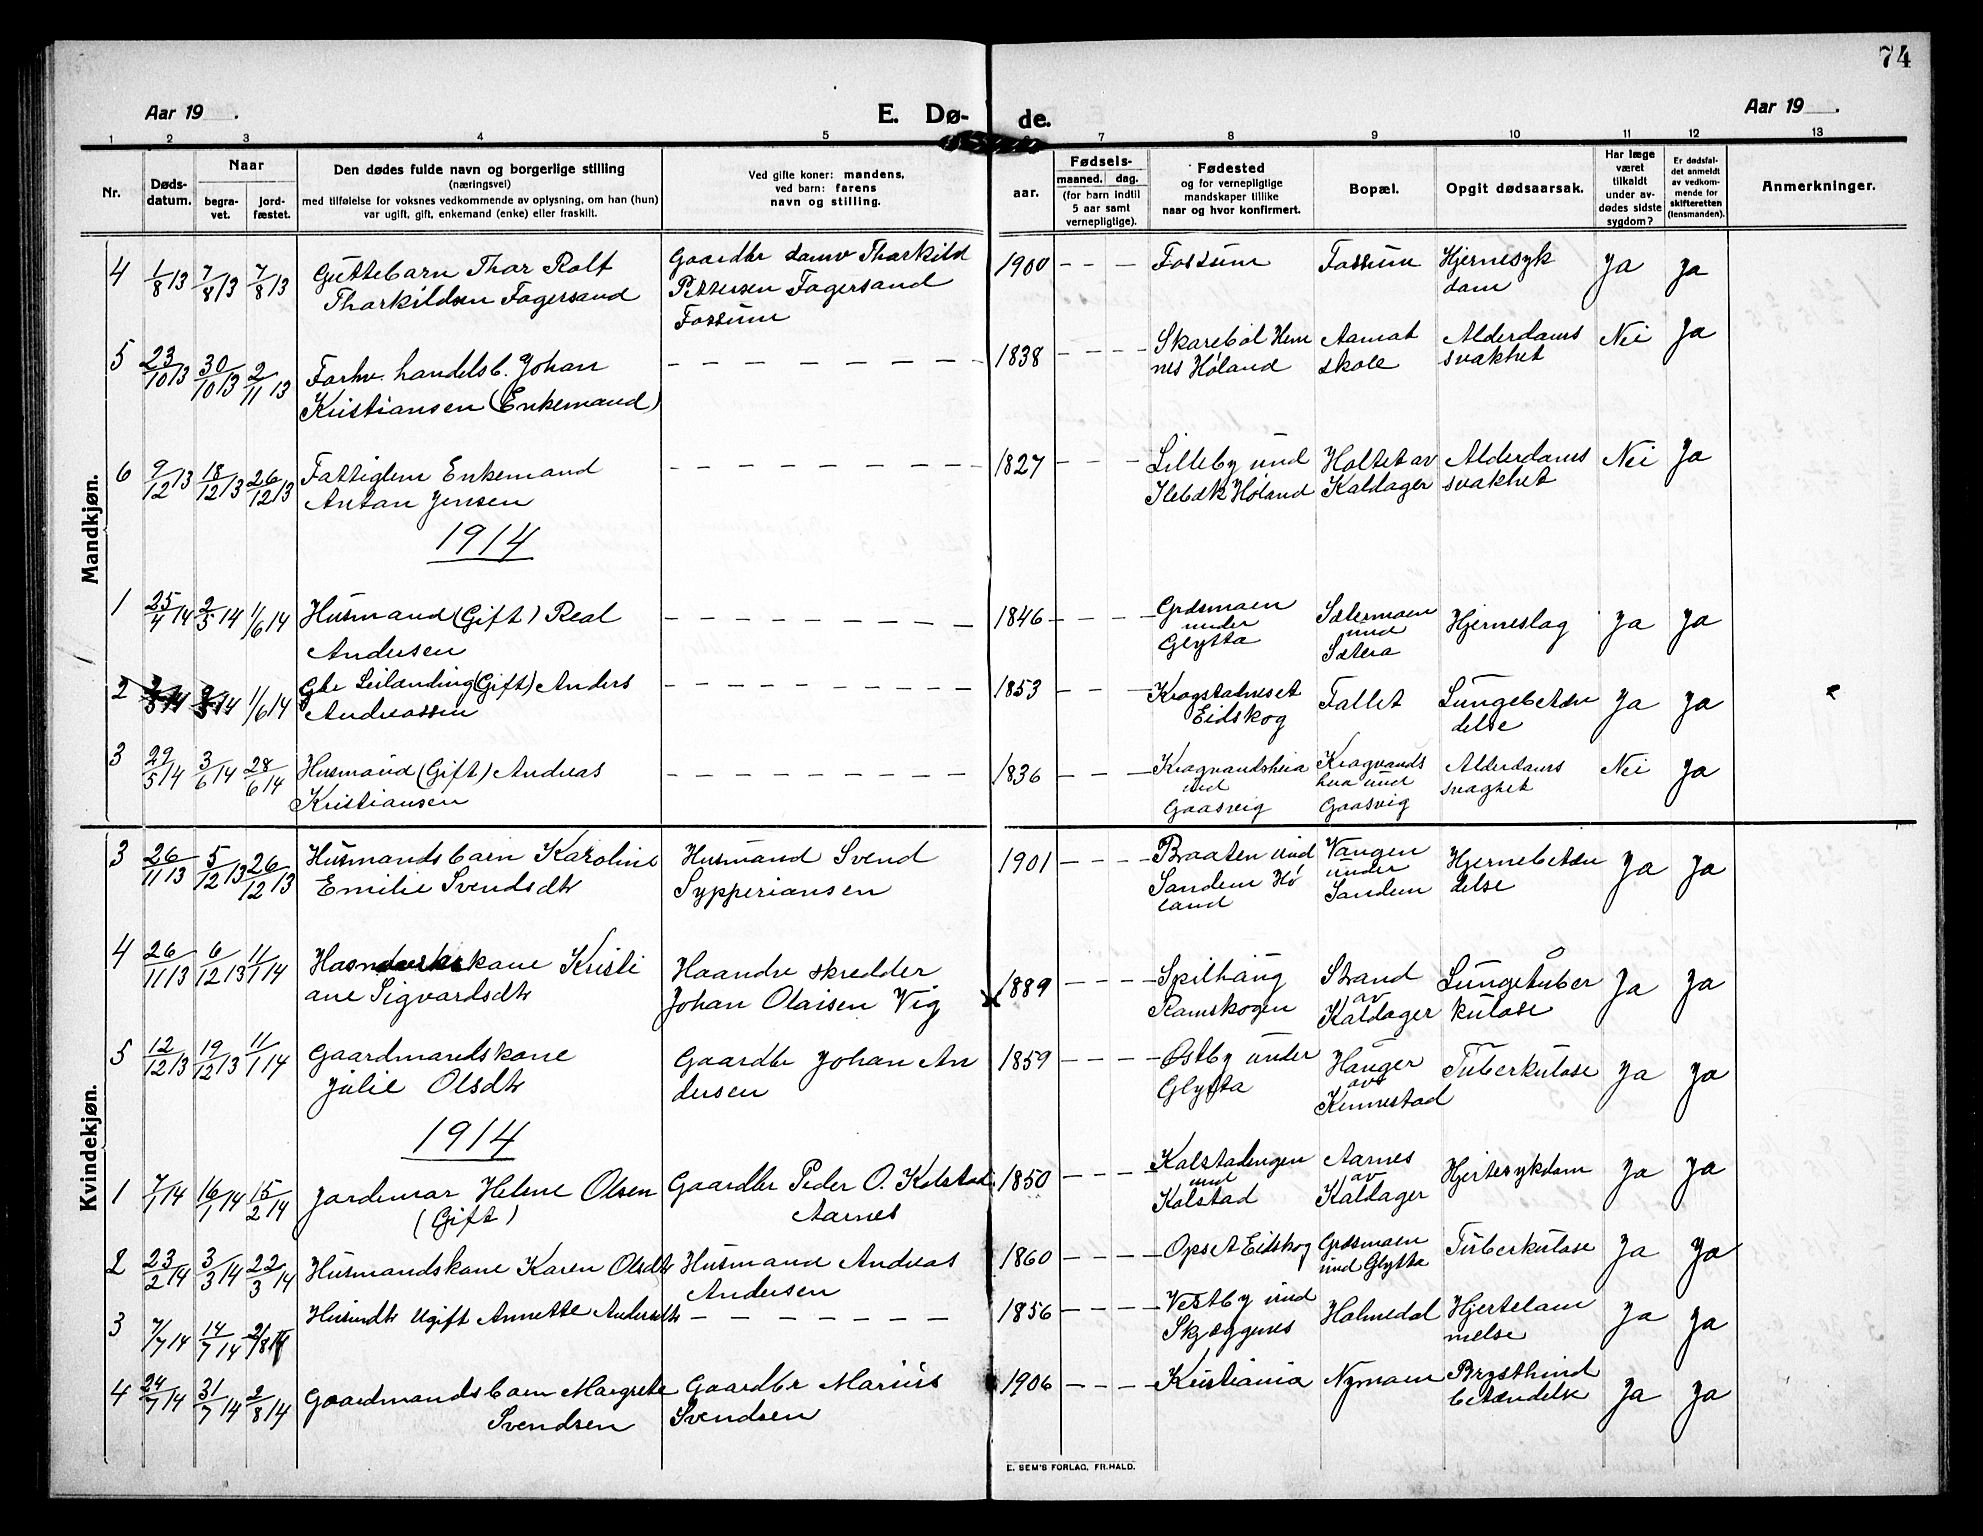 74
Aar 19 .
E. Dø-
de.
Aar 19 .
1 2 3 4 5 7 8 9 10 11 12 13
Nr.
Døds-
datum.
Naar
begra-
vet.
jord-
fæstet.
Den dødes fulde navn og borgerlige stilling
(næringsvei)
med tilføielse for voksnes vedkommende av oplysning, om han (hun)
var ugift, gift, enkemand (enke) eller fraskilt.
Ved gifte koner: mandens,
ved barn: farens
navn og stilling.
aar.
Fødsels-
maaned. dag.
(for barn indtil
5 aar samt
vernepligtige).
Fødested
og for vernepligtige
mandskaper tillike
naar og hvor konfirmert.
Bopæl.
Opgit dødsaarsak.
Har læge
været
tilkaldt
under av-
dødes sidste
sygdom?
Er dødsfal-
det anmeldt
av vedkom-
mende for
skifteretten
(lensmanden).
Anmerkninger.
Mandkjøn.
4 1/8 13 7/8 13 7/8 13 Guttebarn Thor Rolf
Thorkildsen Fagersand
Gaardbr Thorkild
Pettersen Fagersand
Fossum
1900 – – – Fossum Fossum Hjernesyk
dom
Ja Ja
5 23/10 13 30/10 13 2/11 13 Forhv. handelsb. Johan
Kristiansen (Enkemand)
– – – – – – –
1838 – – – Skarebøl Hem
nes Høland
Aamot
skole
Alderdoms
svakhet
Nei Ja
6 9/12 13 18/12 13 26/12 13 Fattiglem Enkemand
Anton Jensen
– – – – – – – –
1827 – – – Lilleby und
Ilebæk Høland
Holtet av
Kaldager
Alderdoms
svakhet
Nei Ja
1914
1 25/4 14 2/5 14 1/6 14 Husmand (Gift) Real
Andersen
– – – – – – – –
1846 – – – Grdsmoen
under
Glytta
Sætermoen
und
Sætera
Hjerneslag Ja Ja
2 1/6 14 Gbr Seilanding (Gift) Anders
Andreassen
– – – – – – – –
1853 – – – Krogstadneset
Eidskog
Fallet Lungebetæn
delse
Ja Ja
3 29/5 14 3/6 14 28/6 14 Husmand (Gift) Andreas
Kristiansen
– – – – – – – –
1836 – – – Kragvandshua
und
Gaasvig
Kragvands
hua und
Gaasvig
Alderdoms
svaghet
Nei Ja
Kvindekjøn.
3 26/11 13 5/12 13 26/12 13 Husmandsbarn Karoline
Emilie Svendsdtr
Husmand Svend
Sypperiansen
1901 – – – Braaten und
Sandem Hø
land
Vangen
under
Sandem
Hjernebetæn
delse
Ja Ja
4 26/11 13 6/12 13 11/1 14 Kristi
ane Sigvardsdtr
Haandv skredder
Johan Olaisen Vig
1889 – – – Spilhaug
Rømskogen
Strand
av
Kaldager
Lungetuber
kulose
Ja Ja
5 12/12 13 19/12 13 11/1 14 Gaardmandskone
Julie Olsdtr
Gaardbr Johan An
dersen
1859 – – – Østby under
Glytta
Hauger
av
Kinnestad
Tuberkulose Ja Ja
1914
1 7/1 14 16/1 14 15/2 14 Jordemor Helene Olsen
(Gift)
Gaardbr Peder O. Kolstad
Aarnes
1850 – – – Kolstadengen
und
Kolstad
Aarnes
av
Kaldager
Hjertesykdom Ja Ja
2 23/2 14 3/3 14 22/3 14 Husmandskone Karen Olsdtr
Husmand Andreas
Andersen
1860 – – – Opset Eidskog Grdsmoen
und Glytta
Tuberkulose Ja Ja
3 7/7 14 14/7 14 2/8 14 Husmdtr Ugift Annette Andersdtr
– – – – – – –
1856 – – – Vestby und
Skjæggenes
Holmedal Hjertelam
melse
Ja Ja
4 24/7 14 31/7 14 2/8 14 Gaardmandsbarn Margrete
Svendsen
Gaardbr Marius
Svendsen
1906 – – – Kristiania Nymoen Brysthind
betændelse
Ja Ja
E. SEM'S FORLAG, FR.HALD.